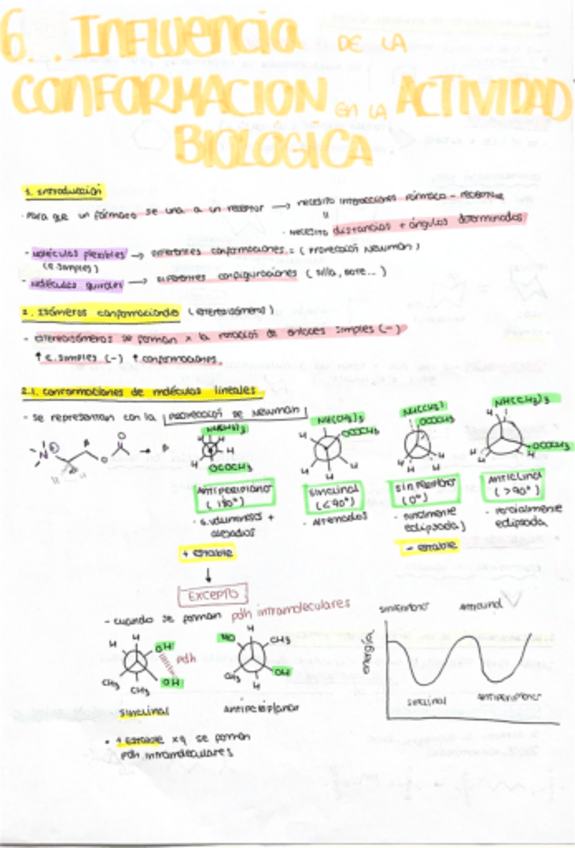 6. Influencia DE LA
CONFORMACION EN LA ACTIVIDAD
BIOLOGICA
1. Introducción
· Para que un fármaco se una a un receptor → necesito interacciones fármaco - receptor
· necesito distancias + ángulos determinados
- Moléculas flexibles → diferentes conformaciones = (Proyección Newman)
(e. simples)
- Moléculas → diferentes configuraciones (silla, bote...)
2. Isómeros conformacionales (estereoisómeros)
- estereoisómeros se forman x la rotación de enlaces simples (-)
↑ e. simples (-) ↑ conformaciones.
2.1. conformaciones de moléculas lineales
- se representan con la proyección de Newman
N(CH3)3 NH(CH3)3 NH(CH3)3 NH(CH3)3
OCOCH3 OCOCH3 OCOCH3 OCOCH3
Antiperiplano (180°) sinclinal (<90°) sinperiplano (0°) Anticlinal (>90°)
· G. voluminosos + alejados · Alternados · totalmente eclipsada) · parcialmente eclipsada
+ estable - estable
EXCEPTO
- cuando se forman pdh intramoleculares
H H OH pdh OH CH3 CH3
HO H CH3 CH3 OH H
sinclinal Antiperiplanar
• + estable xq se forman
pdh intramoleculares
sinperiplano Anticlinal
energía
sinclinal Antiperiplano